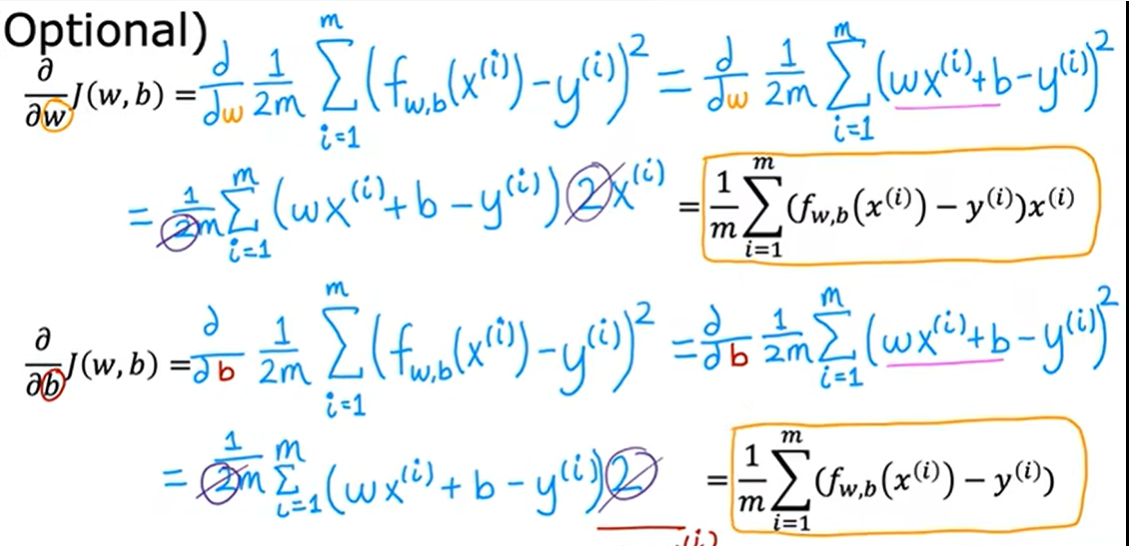 Optional)
∂/∂w J(w, b) = d/dw 1/2m ∑_{i=1}^{m} (f_{w,b}(x^{(i)}) - y^{(i)})^2 = d/dw 1/2m ∑_{i=1}^{m} (wx^{(i)} + b - y^{(i)})^2
= 1/2m ∑_{i=1}^{m} (wx^{(i)} + b - y^{(i)}) 2x^{(i)} = 1/m ∑_{i=1}^{m} (f_{w,b}(x^{(i)}) - y^{(i)})x^{(i)}
∂/∂b J(w, b) = ∂/∂b 1/2m ∑_{i=1}^{m} (f_{w,b}(x^{(i)}) - y^{(i)})^2 = ∂/∂b 1/2m ∑_{i=1}^{m} (wx^{(i)} + b - y^{(i)})^2
= 1/2m ∑_{i=1}^{m} (wx^{(i)} + b - y^{(i)}) 2 = 1/m ∑_{i=1}^{m} (f_{w,b}(x^{(i)}) - y^{(i)})